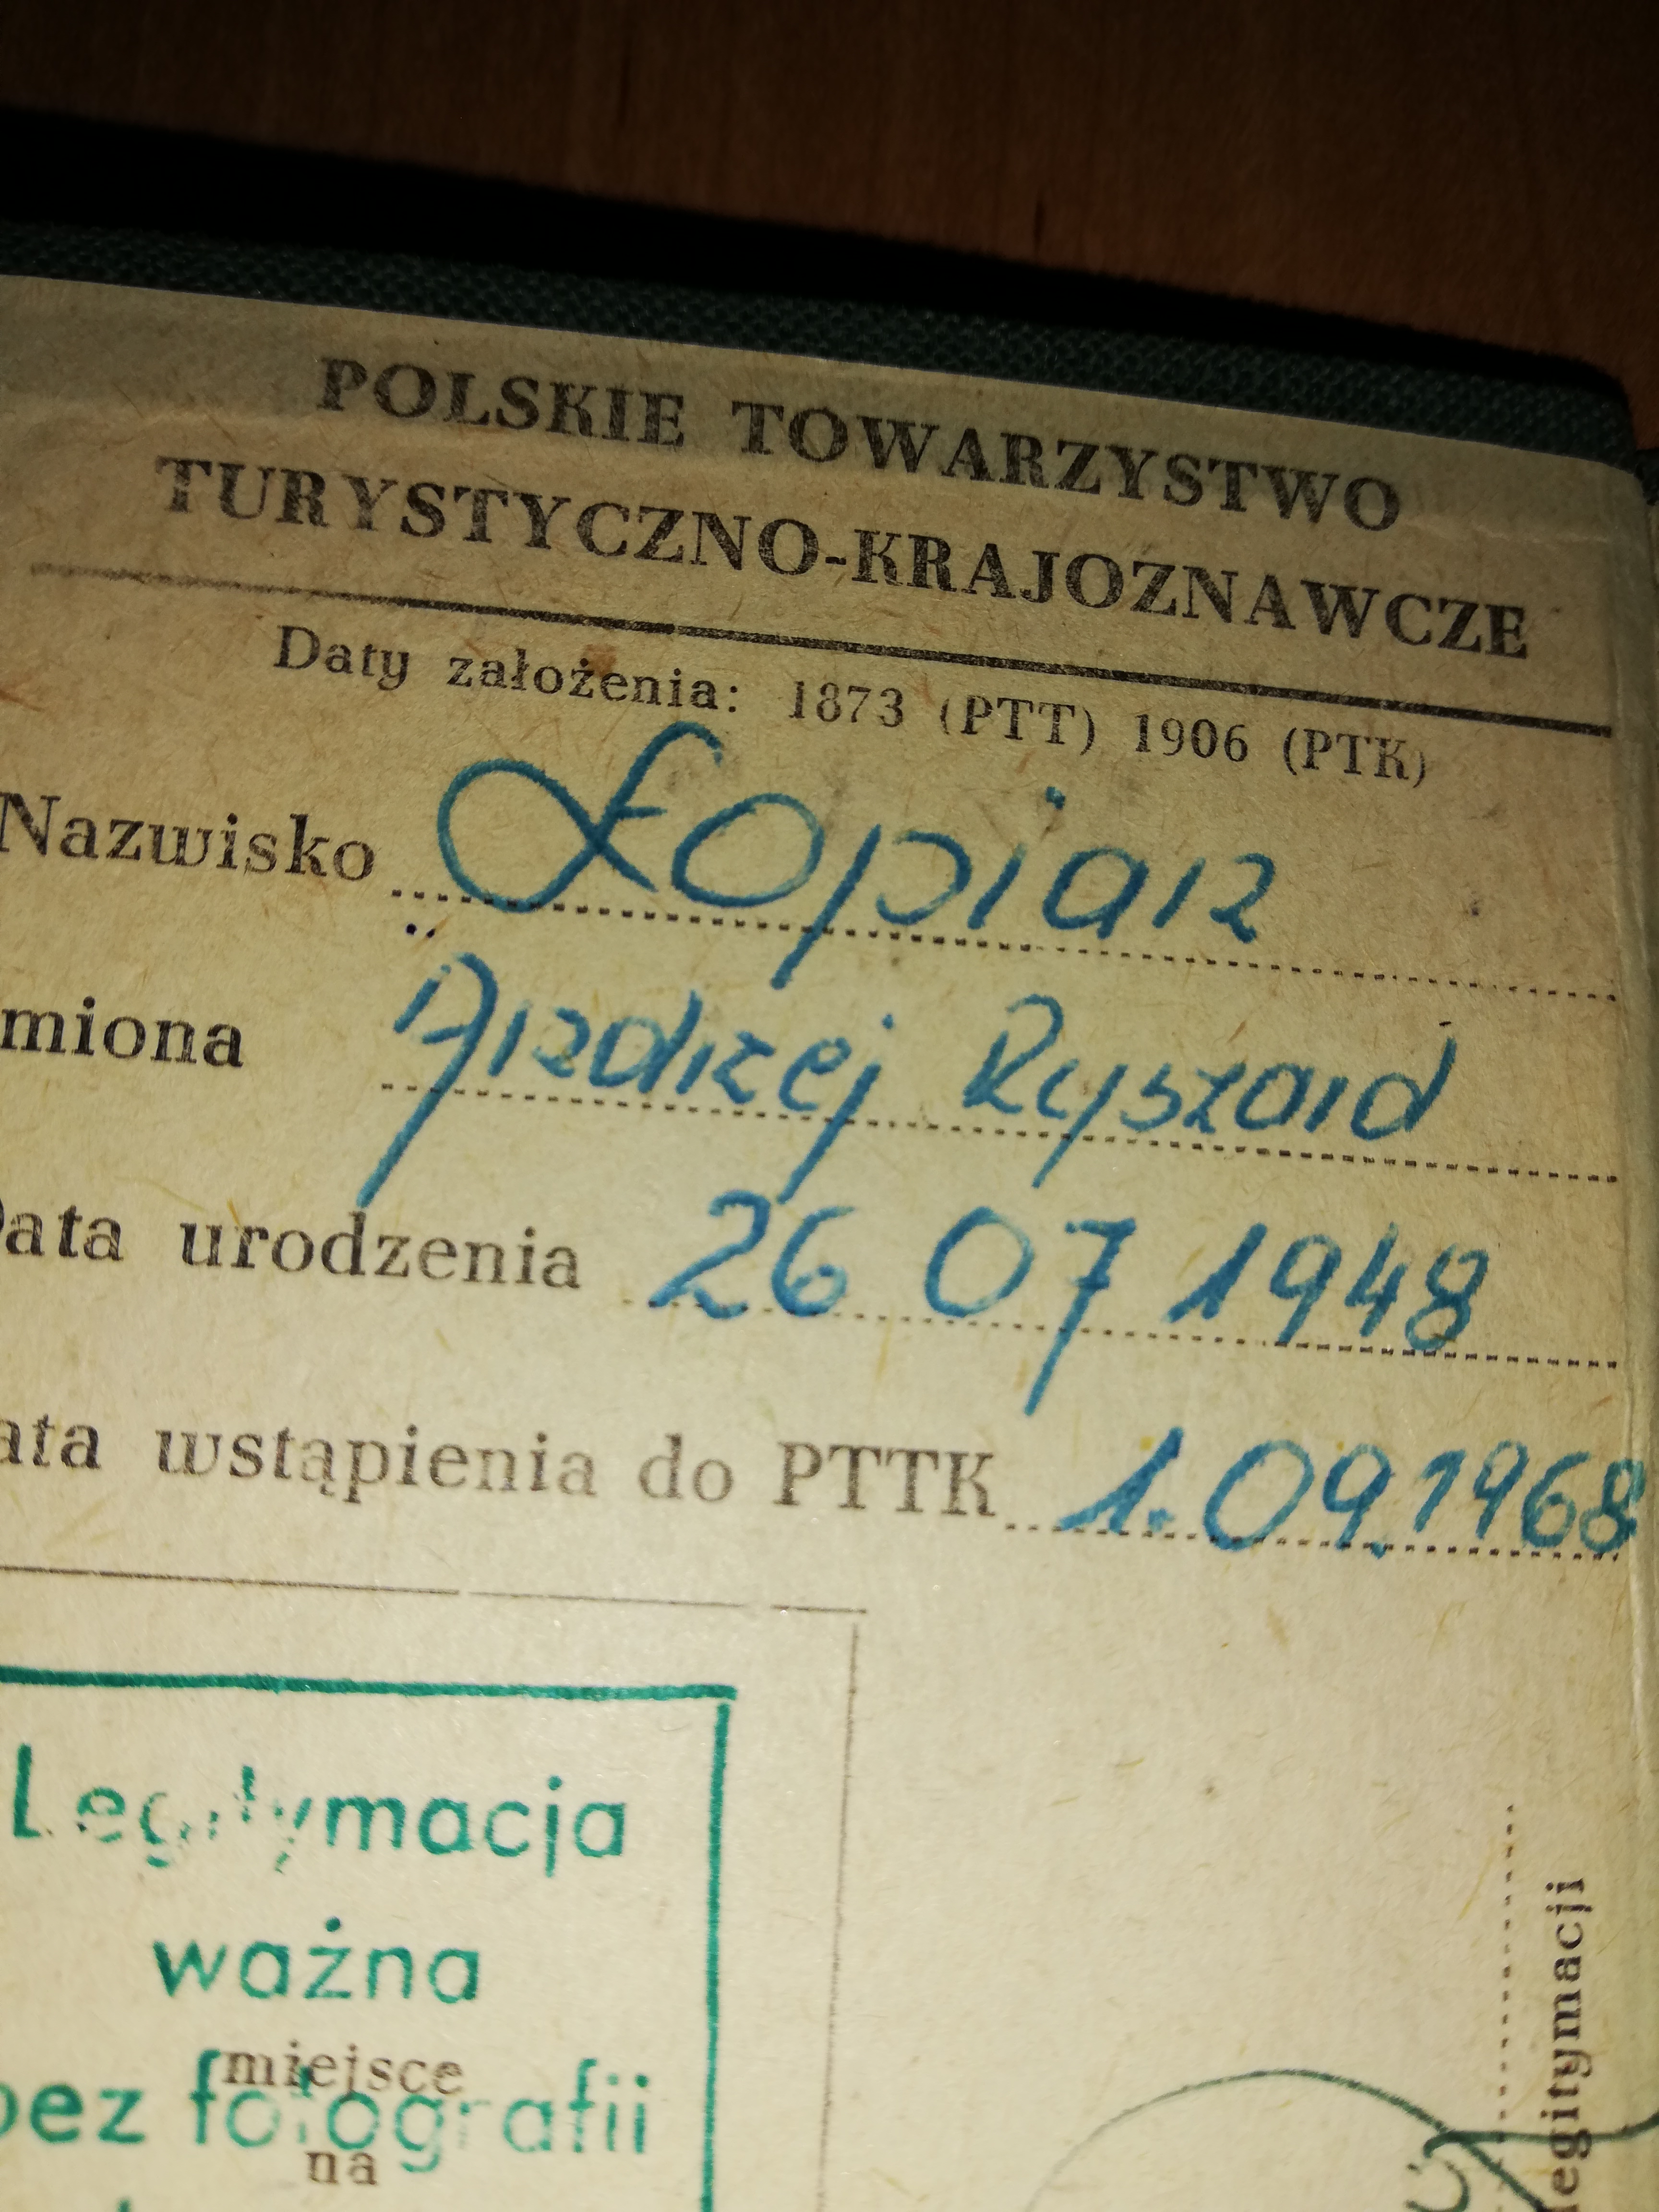 POLSKIE TOWARZYSTWO
TURYSTYCZNO-KRAJOZNAWCZE
Daty założenia: 1873 (PTT) 1906 (PTK)
Nazwisko Łopiarz
miona Andrzej Ryszard
Data urodzenia 26 07 1948
ata wstąpienia do PTTK 1.09.1968
Legitymacja
ważna
miejsce
bez fotografii
na
legitymacji